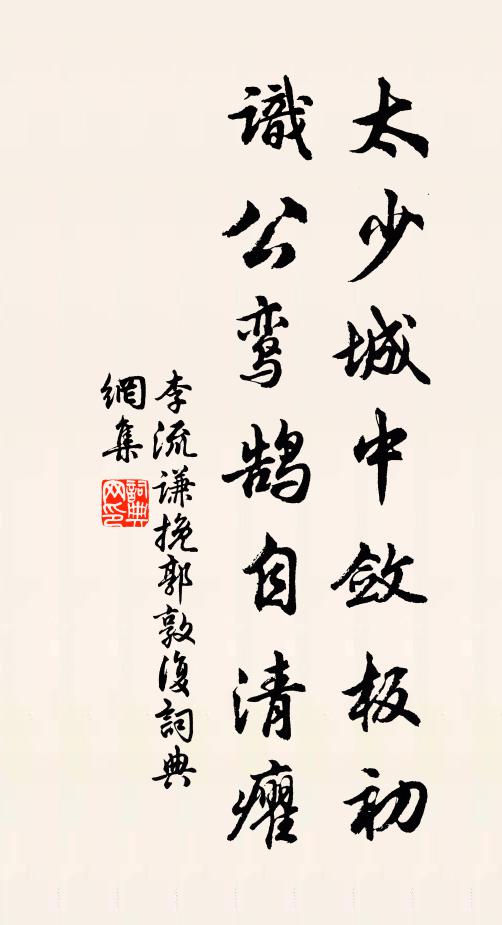 太少城中斂板初
識公鸾鹄自清癯
李流谦挽郭敦復詞典
網集
詞典
网印